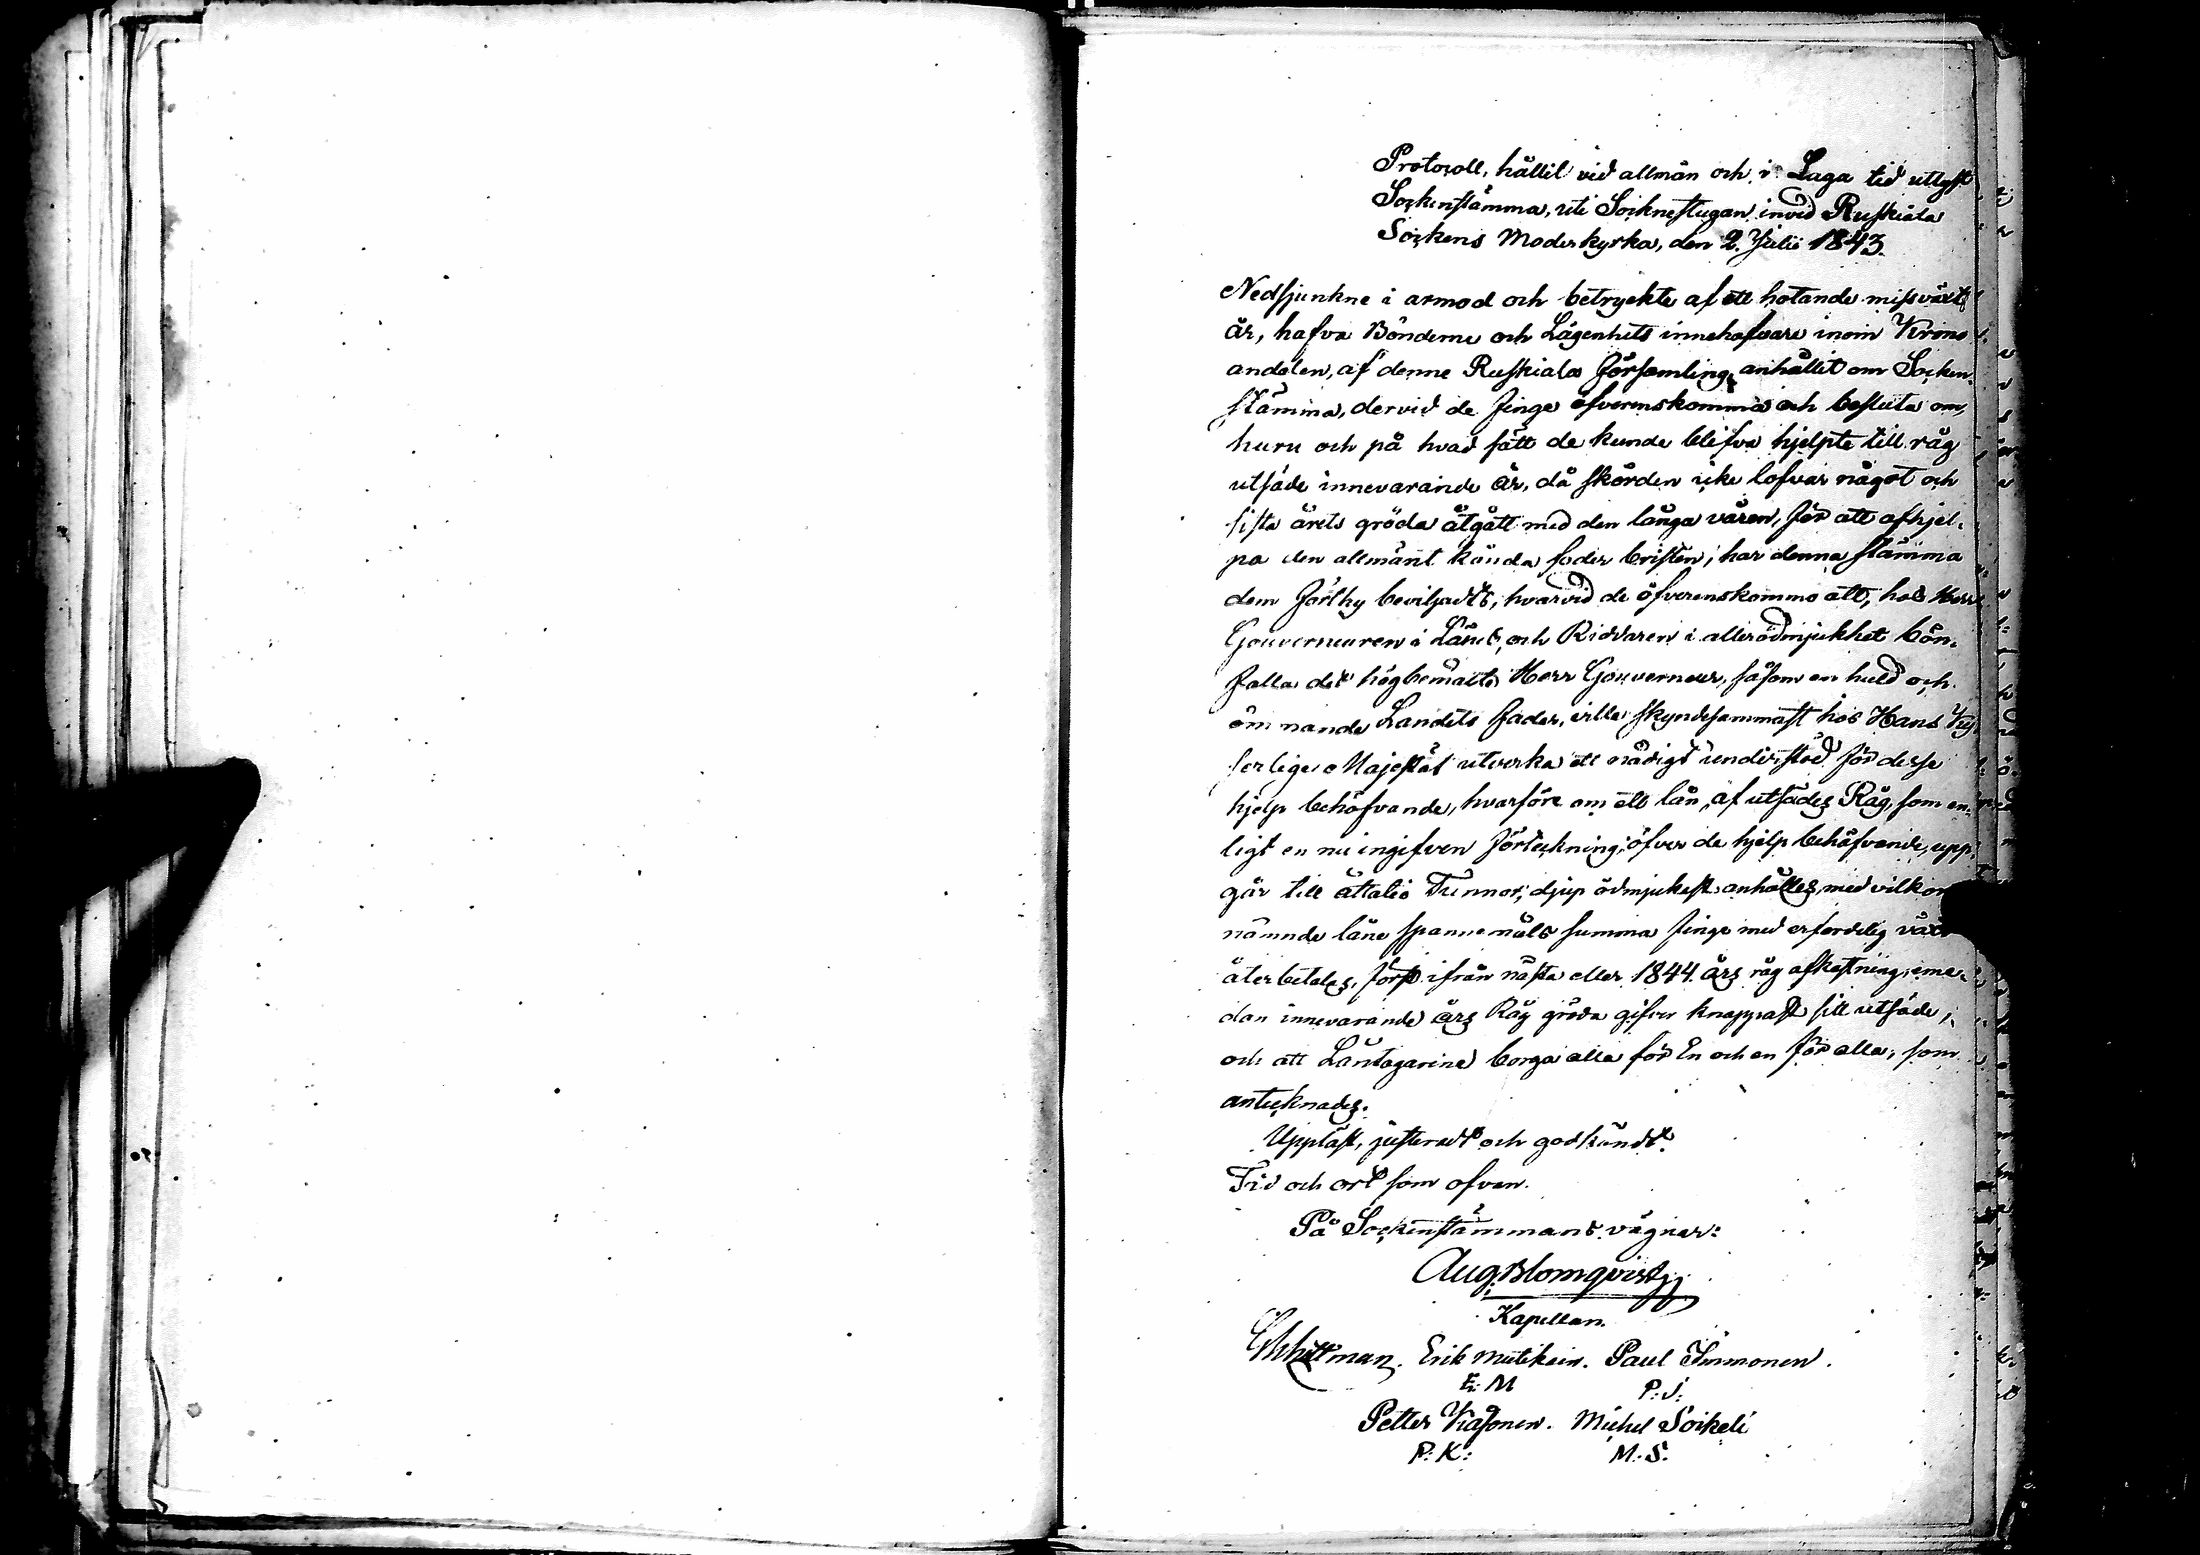 Protocoll, hållit vid allmän och i Laga tid utlyst
Sockenstämma, uti Socknestugan invid Ruskiala
Sockens Moderkyrka, den 2. Julii 1843.
Nedsjunkne i armod och betryckte af ett hotande missväxts
år, hafva Bönderne och Lägenhets innehafvare inom Krono
andelen, af denne Ruskiala Församling, anhållit om Socken-
stämma, dervid de finge öfverenskomma och besluta om,
huru och på hvad sätt de kunde blifva hjelpte till råg
utsäde innevarande år, då skörden icke lofvar något och
sista årets gröda åtgått med den långa våren, för att afhjel-
pa den allmänt kända foder bristen; har denna stämma
dem förthy beviljadts, hvarvid de öfverenskommo att, hos Herr
Gouverneuren i Länet, och Riddaren i allerödmjukhet bön-
falla det högbemälte Herr Gouverneur, såsom en huld och
ömmande Landets fader, ville skyndesammast hos Hans Kej-
serlige Majestät utverka ett nådigt understöd för desse
hjelp behöfvande, hvarföre om ett lån, af utsädes Råg, som en-
ligt en nu ingifven förteckning öfver de hjelp behöfvande, upp-
går till åttatio Tunnor, djup ödmjukast anhålles, med vilkor
nämnde låne spannemåls summa finge med erforderlig växt
återbetalas, först ifrån nästa eller 1844. års råg afkastning, eme-
dan innevarande års Råg gröda gifver knappast sitt utsäde;
och att Låntagarine borga alla för En och en för alla; som
antecknades.
Uppläst, justeradt och godkändt.
Tid och ort som ofvan.
På Sockenstämmans vägnar:
Aug. Blomqvist
Kapellan.
Erik Mutikain. Paul Immonen.
E: M P: I:
Petter Kiasonen. Michel Soikeli
P: K: M: S: